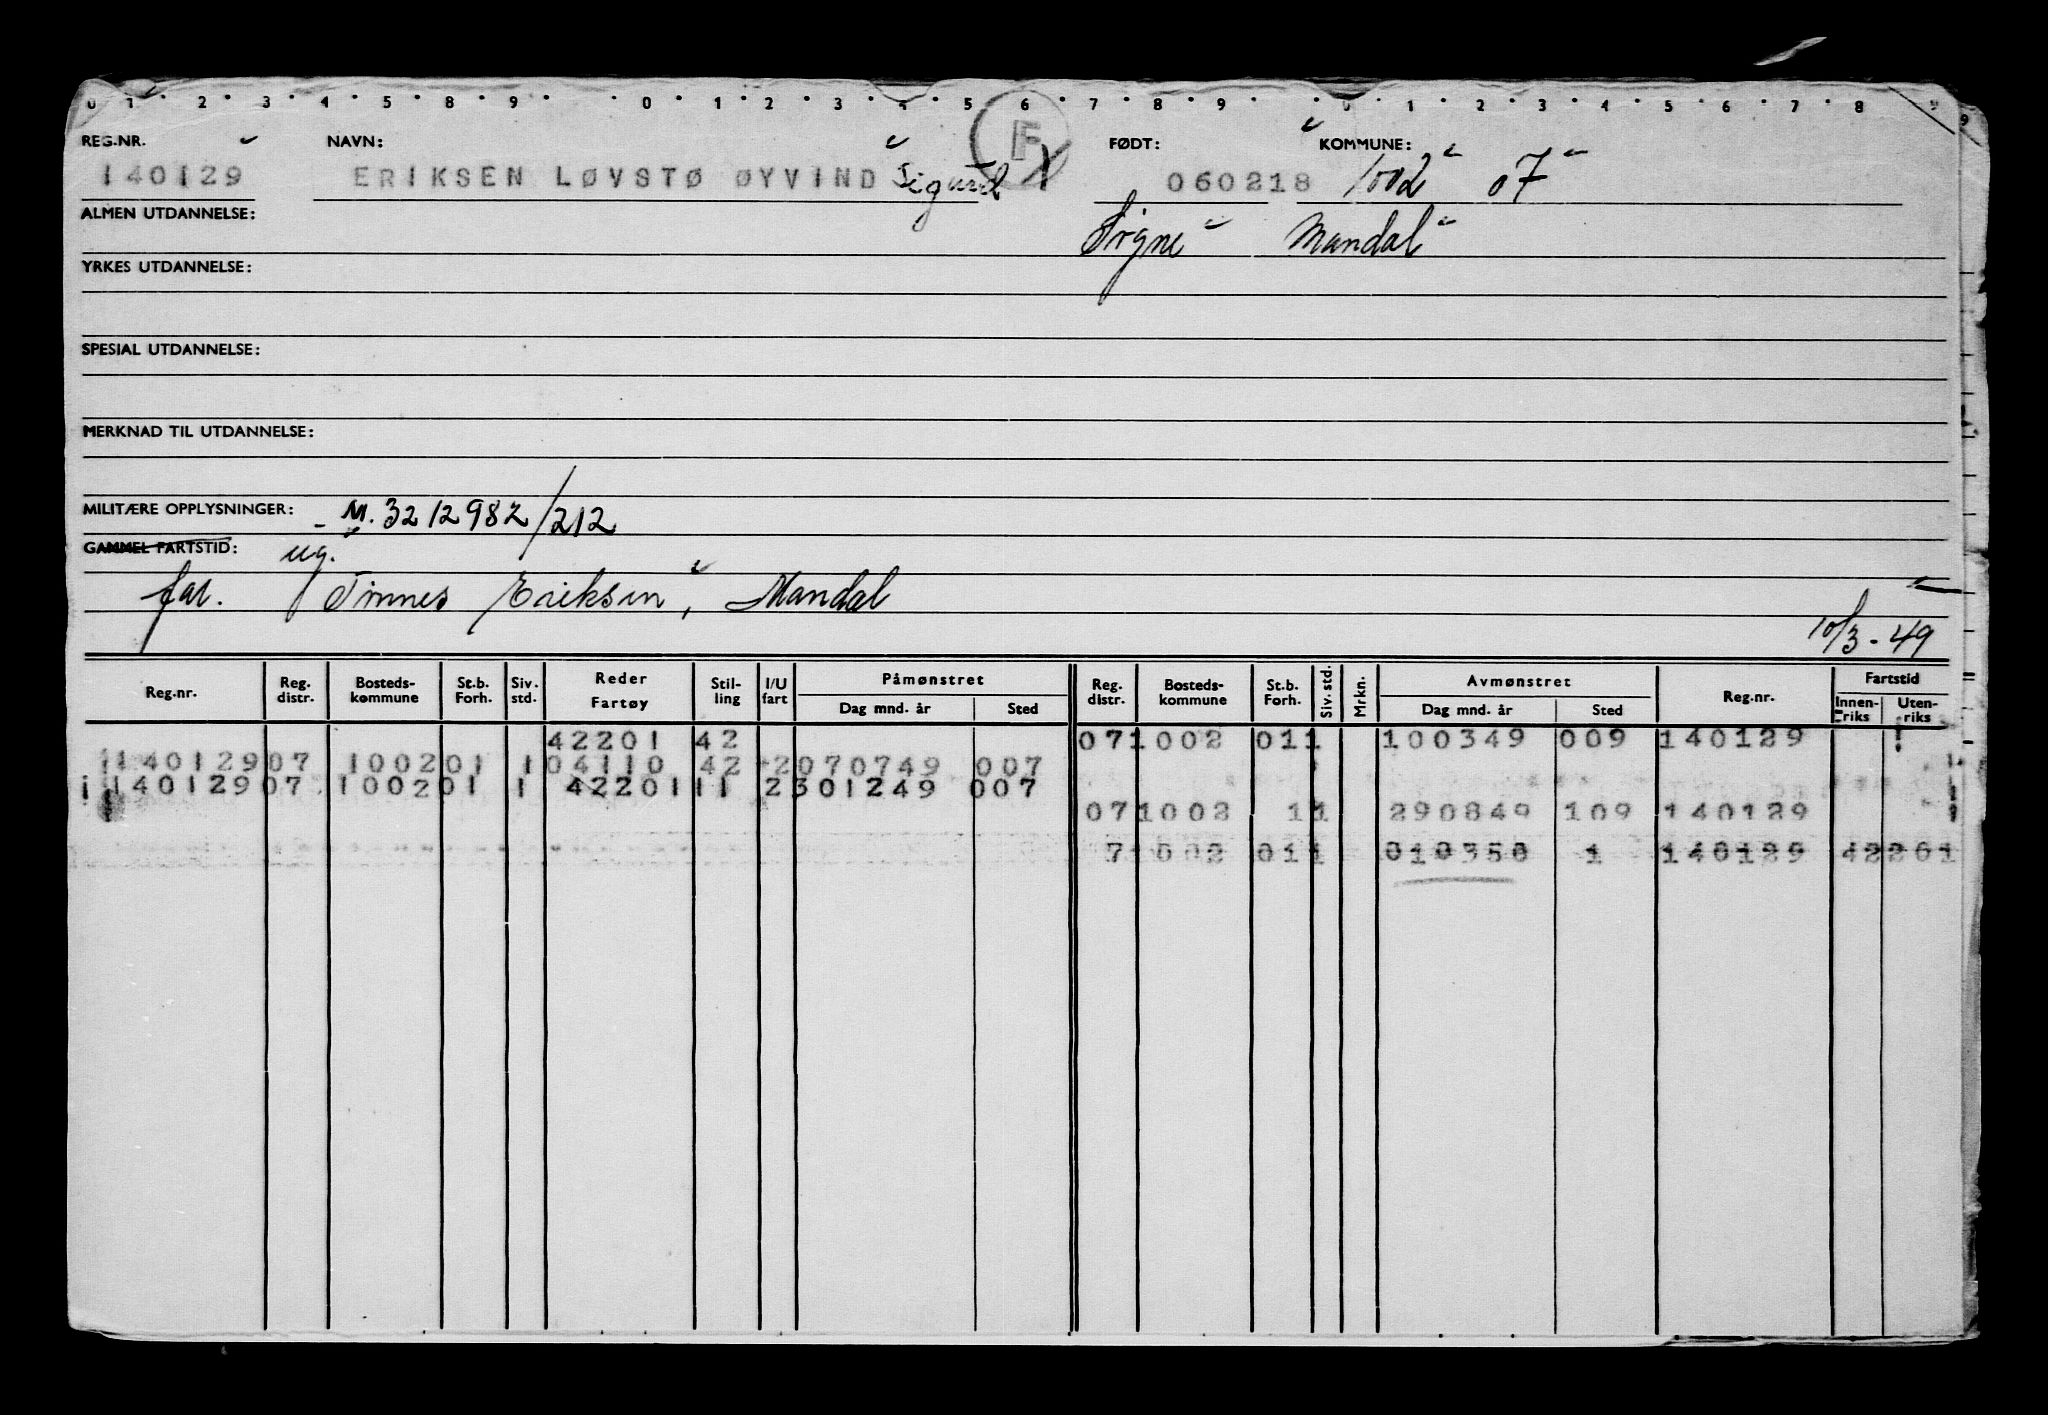 0 1 2 3 4 5 8 9 0 1 2 3 4 5 6 7 8 9 0 1 2 3 4 5 6 7 8 9
REG.NR. NAVN: F FØDT: KOMMUNE:
140129 ERIKSEN LØVSTØ ØYVIND Sigurd 060218 1002 07
ALMEN UTDANNELSE: Søgne Mandal
YRKES UTDANNELSE:
SPESIAL UTDANNELSE:
MERKNAD TIL UTDANNELSE:
MILITÆRE OPPLYSNINGER: - M. 3212982/212
GAMMEL FARTSTID: ug.
far. Tønnes Eriksen, Mandal
10/3 - 49
Reg.nr. Reg. distr. Bosteds- kommune St.b. Forh. Siv. std. Reder Fartøy Stil- ling I/U fart Påmønstret Dag mnd. år Sted Reg. distr. Bosteds- kommune St.b. Forh. Siv. std. Mrkn. Avmønstret Dag mnd. år Sted Reg.nr. Fartstid Innen- riks Uten- riks
42201 42 07 1002 01 1 100349 009 140129
140129 07 1002 01 1 04110 42 2 070749 007
140129 07 1002 01 1 42201 11 2 301249 007
07 1002 1 1 290849 109 140129
7 002 01 1 010350 1 140129 42201